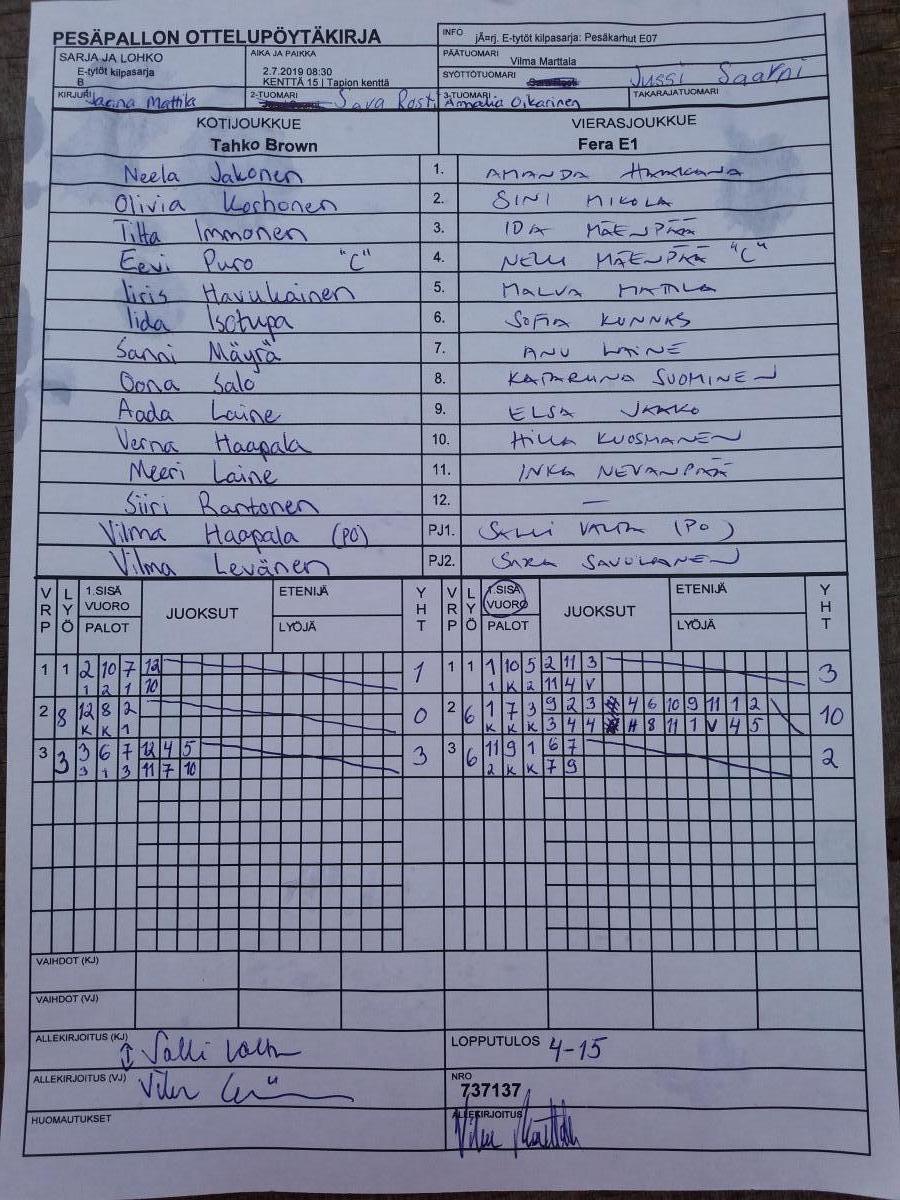 PESÄPALLON OTTELUPÖYTÄKIRJA
INFO jÃ¤rj. E-tytöt kilpasarja: Pesäkarhut E07
SARJA JA LOHKO E-tytöt kilpasarja B
AIKA JA PAIKKA 2.7.2019 08:30 KENTTÄ 15 | Tapion kenttä
PÄÄTUOMARI Vilma Marttala
SYÖTTÖTUOMARI Jussi Saarni
KIRJURI Jaana Mattila
2-TUOMARI Sara Rosti
3-TUOMARI Amalia Oikarinen
TAKARAJATUOMARI
KOTIJOUKKUE VIERASJOUKKUE
Tahko Brown Fera E1
Neela Jakonen 1. AMANDA
Olivia Korhonen 2. SINI MIKOLA
Titta Immonen 3. IDA MÄENPÄÄ
Eevi Puro "C" 4. NELLI MÄENPÄÄ "C"
Iiris Havukainen 5. MALVA MATTILA
Iida Isotupa 6. SOFIA KUNNAS
Sanni Mäyrä 7. ANU LAINE
Oona Salo 8. KATARIINA SUOMINEN
Aada Laine 9. ELSA JAAKO
Verna Haapala 10. HILLA KUOSMANEN
Meeri Laine 11. INKA NEVANPÄÄ
Siiri Rantonen 12. —
Vilma Haapala (PO) PJ1. SALLI VALTA (PO)
Vilma Levänen PJ2. SARA
VRP LYÖ 1.SISÄ VUORO PALOT JUOKSUT ETENIJÄ LYÖJÄ YHT VRP LYÖ 1.SISÄ VUORO PALOT JUOKSUT ETENIJÄ LYÖJÄ YHT
1 1 2 10 7 12 1 1 1 1 10 5 2 11 3 3
1 2 1 10 1 K 2 11 4 V
2 8 12 8 2 0 2 6 1 7 3 9 2 3 4 6 10 9 11 1 2 10
K K 1 K K K 3 4 4 H 8 11 1 V 4 5
3 3 3 6 7 12 4 5 3 3 6 11 9 1 6 7 2
3 1 3 11 7 10 2 K K 7 9
VAIHDOT (KJ)
VAIHDOT (VJ)
ALLEKIRJOITUS (KJ) Salli Valta LOPPUTULOS 4-15
ALLEKIRJOITUS (VJ) NRO 737137
HUOMAUTUKSET ALLEKIRJOITUS